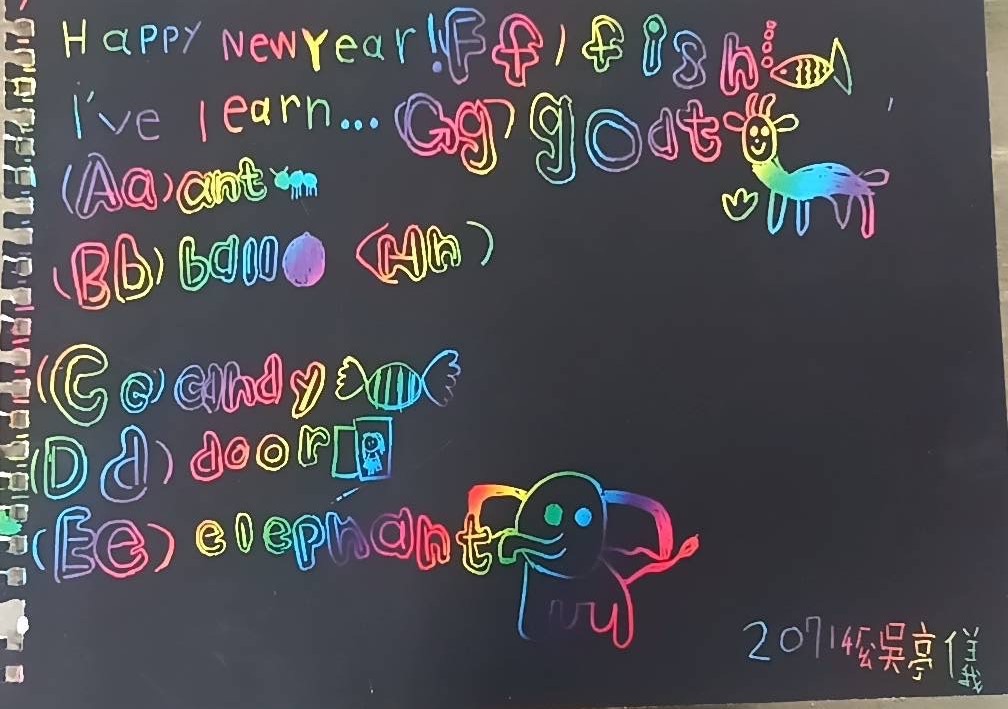 Happy New Year!
I've learn...
(Aa) ant
(Bb) ball
(Cc) candy
(Dd) door
(Ee) elephant
Ff) fish
Gg) goat
(Hh)
20714 吳亭儀